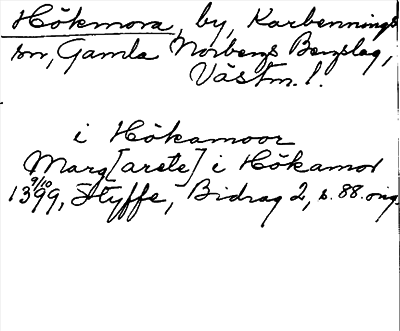 Hökmora, by, Karbennings
sn, Gamla Norbergs Bergslag,
Västm. l.
i Hökamoor
Marg[arete] i Hökamor
9/10 1399, Styffe, Bidrag 2, s. 88. orig.